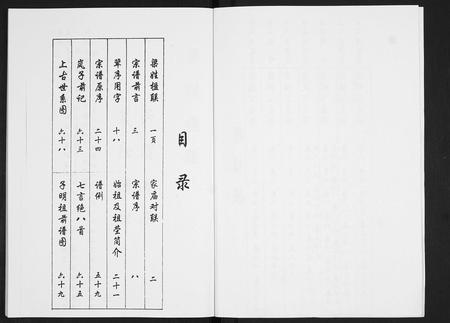 目录
梁姓楹联 一页 家庙对联 二
宗谱前言 三 宗谱序 八
辈序用字 十八 始祖及祖茔简介 二十一
宗谱原序 二十四 谱例 五十九
岚子前记 六十三 七言绝八首 六十五
上古世系图 六十八 子明祖前谱图 六十九